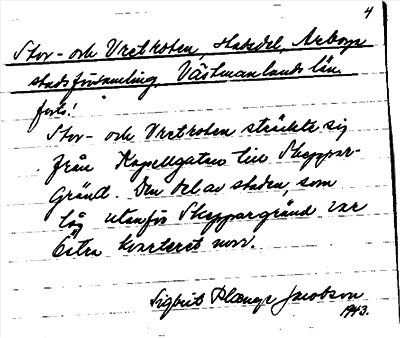 4
Stor- och Vretroten, Stadsdel, Arboga
stadsförsamling, Västmanlands län.
forts!
Stor- och Vretroten sträckte sig
från Kapellgatan till Skeppar-
gränd. Den del av staden, som
låg utanför Skeppargränd var
Östra kvarteret norr.
Sigbrit Plænge Jacobson
1943.